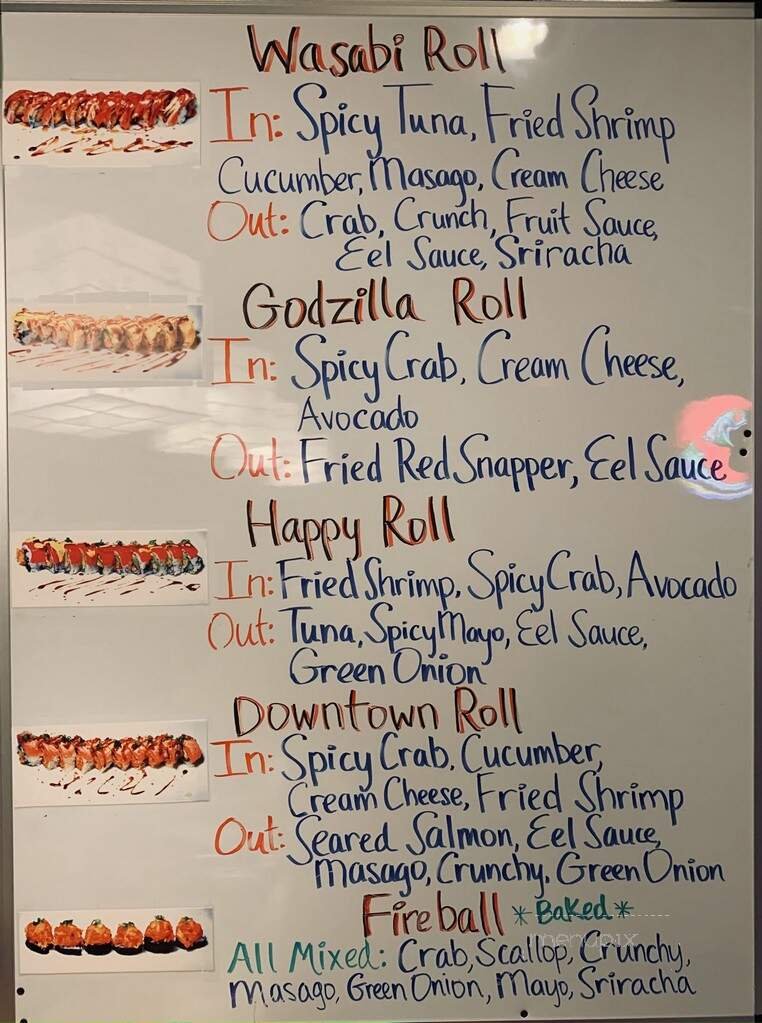 Wasabi Roll
In: Spicy Tuna, Fried Shrimp
Cucumber, Masago, Cream Cheese
Out: Crab, Crunch, Fruit Sauce,
Eel Sauce, Sriracha
Godzilla Roll
In: Spicy Crab, Cream Cheese,
Avocado
Out: Fried Red Snapper, Eel Sauce
Happy Roll
In: Fried Shrimp, Spicy Crab, Avocado
Out: Tuna, Spicy Mayo, Eel Sauce,
Green Onion
Downtown Roll
In: Spicy Crab, Cucumber,
Cream Cheese, Fried Shrimp
Out: Seared Salmon, Eel Sauce,
Masago, Crunchy, Green Onion
Fireball *Baked*
menupix
All Mixed: Crab, Scallop, Crunchy,
Masago, Green Onion, Mayo, Sriracha